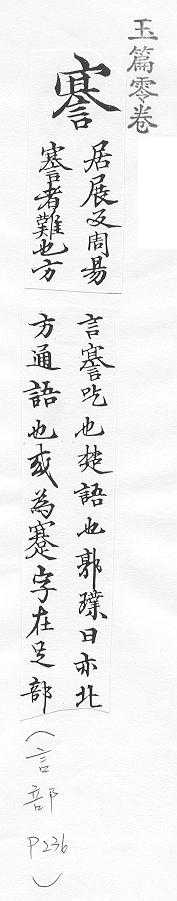 玉篇零卷
謇
居展反周易
謇者難也方
言謇吃也楚語也郭璞曰亦北
方通語也或為蹇字在足部
(言部 P236)